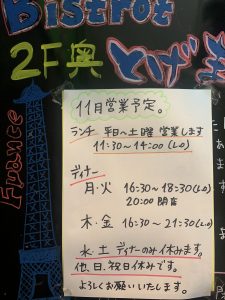 Bistrot
2F奥 とげま
France
11月営業予定。
ランチ 平日へ土曜 営業します
11:30~14:00 (L.O)
ディナー
月・火 16:30~18:30(L.O)
20:00 閉店
木・金 16:30~21:30(L.O)
水・土 ディナーのみ休みます。
他、日、祝日休みです。
よろしくお願いいたします。